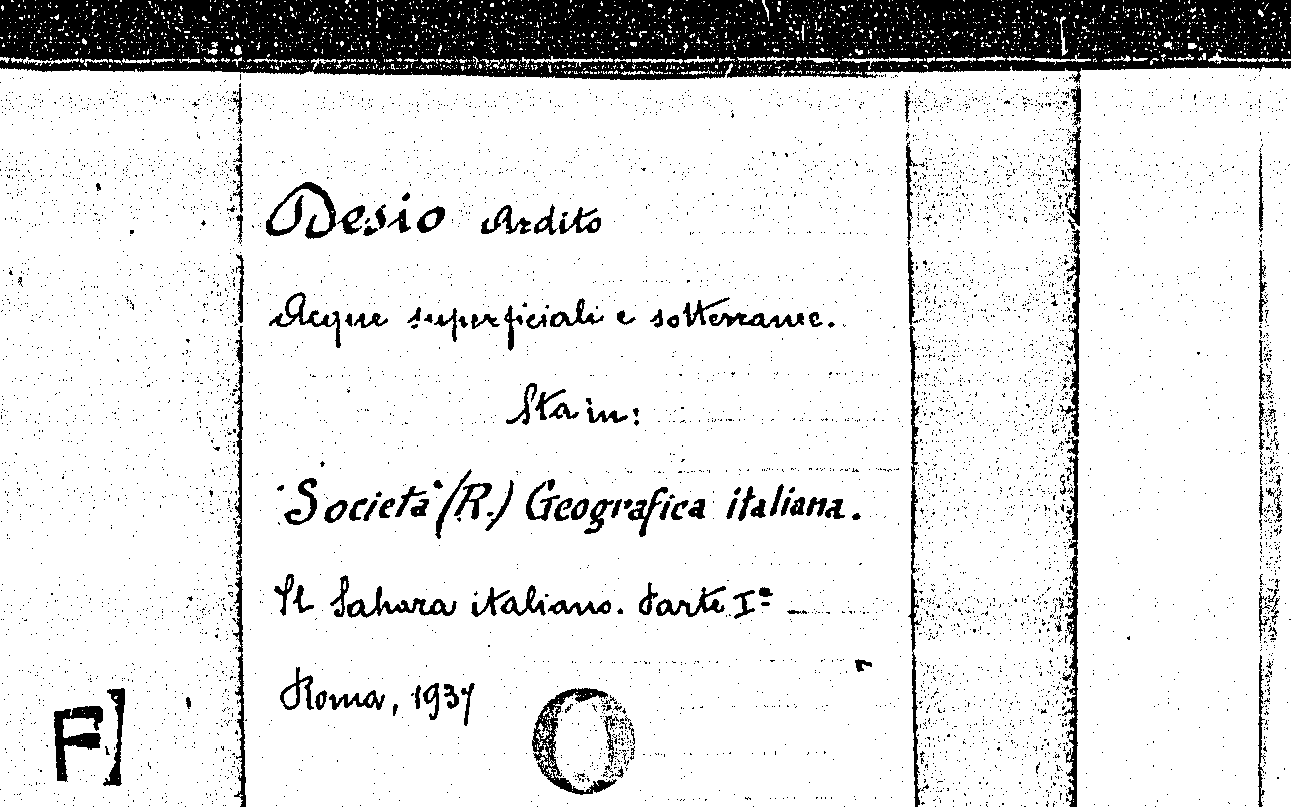 Desio Ardito
Acque superficiali e sotterranee.
Sta in:
"Società" (R.) Geografica italiana.
Il Sahara italiano. Parte Iª
Roma, 1937
F]